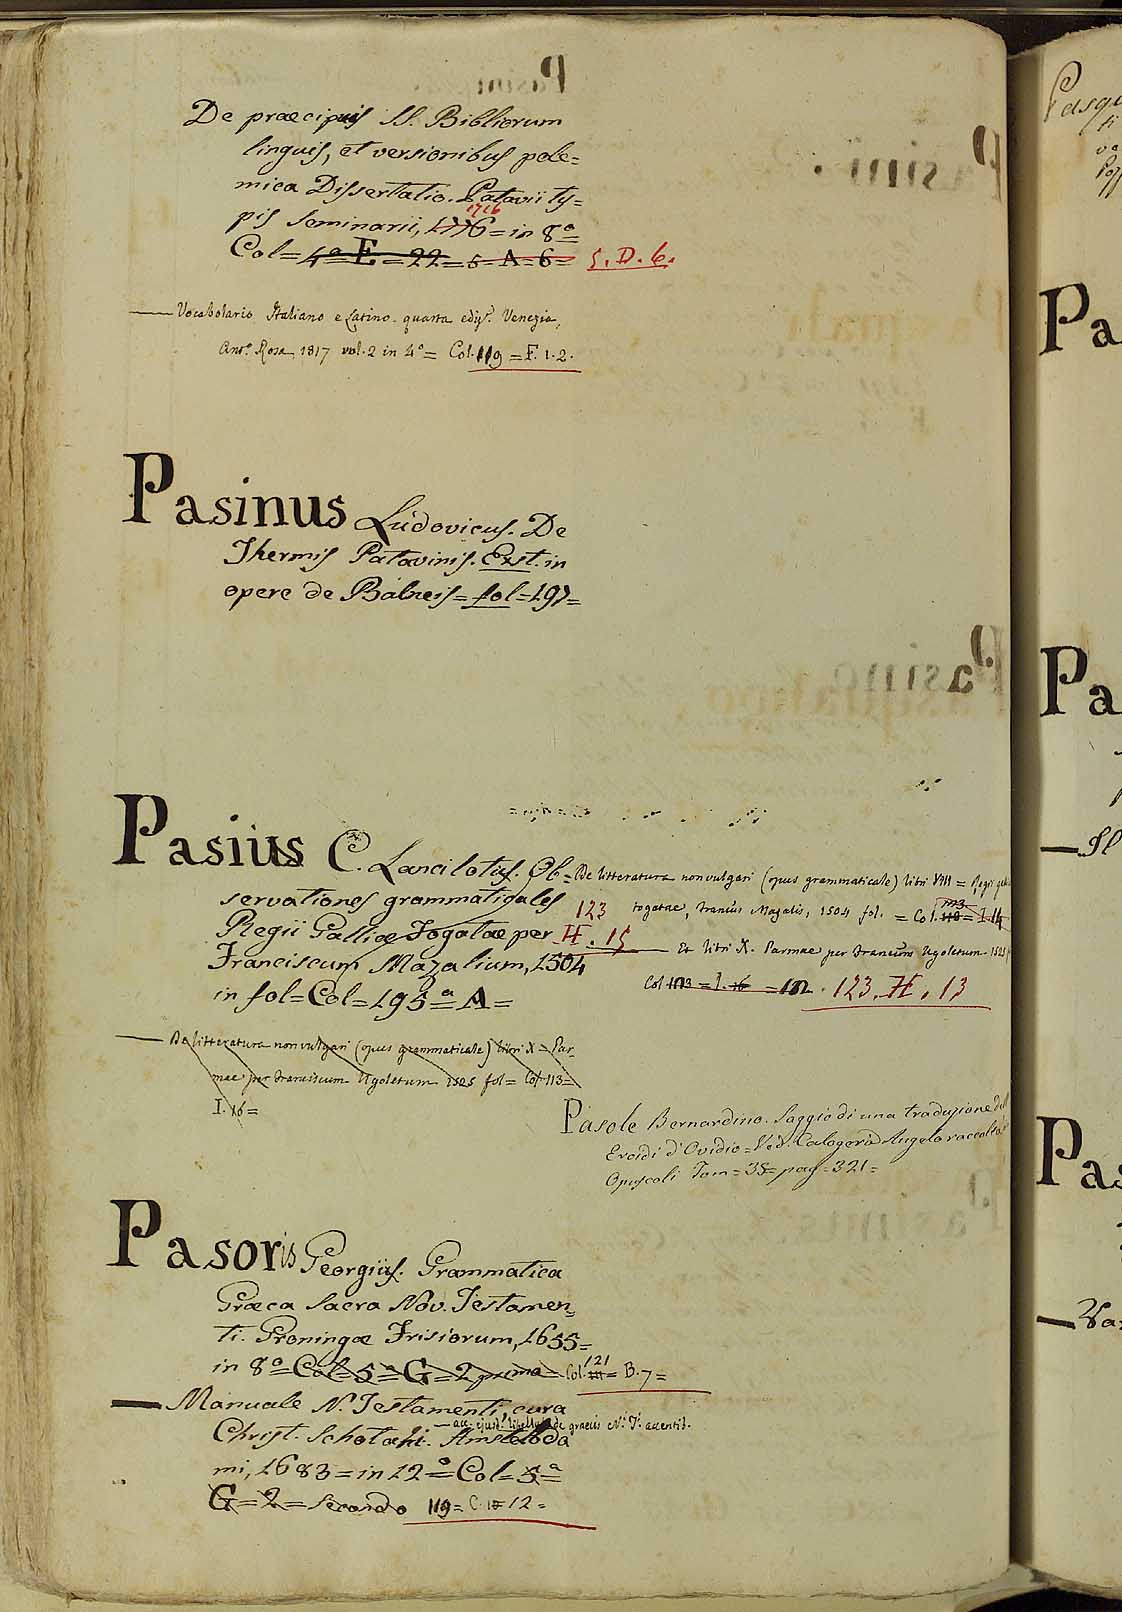 De præcipuis SS. Bibliorum
linguis, et versionibus pole=
mica Dissertatio. Patavii ty=
1716
pis Seminarii, 1776= in 8º=
Col= 4ª= E= 22= 5= A= 6= 5. D. 6.
— Vocabolario Italiano e Latino. quarta ediz. Venezia,
Antº. Rosa 1817 vol. 2 in 4º= Col. 119 = F. 1. 2.
Pasinus Ludovicus. De
Thermis Patavinis. Exst. in
opere de Balneis= fol= 197=
Pasius C. Lancilotus. Ob=
servationes grammaticales
Regii Galliæ Togatae per
Franciscum Mazalium, 1504
in fol= Col= 195ª A=
123
H. 15
De litteratura non vulgari (opus grammaticale) libri VIII = Regii
togatae, Francus Mazalis, 1504 fol. = Col.
113
110= I. 14
— Et libri X. Parmae per Francum Ugoletum 1525
Col 113 = I. 16 = 122 . 123. H. 13
— De litteratura non vulgari (opus grammaticale) libri X = Par-
mae per Franciscum Ugoletum 1525 fol= Col 113=
I. 16=
Pasole Bernardino. Saggio di una traduzione dell
Eroidi d'Ovidio= Ved. Calogerà Angelo raccolta
Opuscoli Tom= 35= pag= 321=
Pasoris Georgius. Grammatica
Græca Sacra Nov. Testamen=
ti. Groningæ Frisiorum, 1655=
in 8º= Col= 5ª= G= 2 prima= Col. 121 = B. 7=
— Manuale N. Testamenti, cura
— acc. ejusd. libellus de graecis N. T. accentib.
Christ. Schotani. Amsteloda
mi, 1683= in 12º= Col= 5ª
G= 2= secondo 119= C. 12=
Pasqu
Pa
Pa
Pas